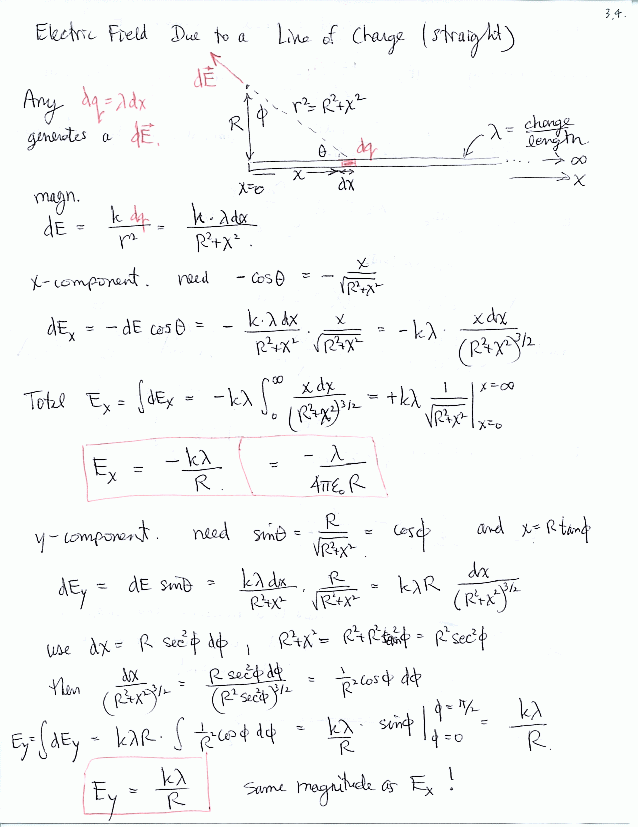 3.4.
Electric Field Due to a Line of Charge (straight)
dE⃗
Any dq = λdx
generates a dE⃗.
R φ r² = R²+x²
θ dq
λ = charge/length.
x=0 x dx ..... → ∞
→ x
magn.
dE = k dq / r² = k·λdx / (R²+x²).
x-component. need -cosθ = - x/√(R²+x²)
dEx = - dE cosθ = - k·λdx/(R²+x²) · x/√(R²+x²) = -kλ · x dx/(R²+x²)^3/2
Total Ex = ∫dEx = -kλ ∫₀^∞ x dx/(R²+x²)^3/2 = +kλ 1/√(R²+x²) |x=∞ x=0
Ex = -kλ/R = -λ/(4πε₀R)
y-component. need sinθ = R/√(R²+x²) = cosφ and x = R tanφ
dEy = dE sinθ = kλdx/(R²+x²) · R/√(R²+x²) = kλR dx/(R²+x²)^3/2
use dx = R sec²φ dφ , R²+x² = R²+R²tan²φ = R² sec²φ
then dx/(R²+x²)^3/2 = R sec²φ dφ/(R² sec²φ)^3/2 = 1/R² cosφ dφ
Ey = ∫dEy = kλR · ∫ 1/R² cosφ dφ = kλ/R · sinφ |φ=π/2 φ=0 = kλ/R.
Ey = kλ/R same magnitude as Ex !